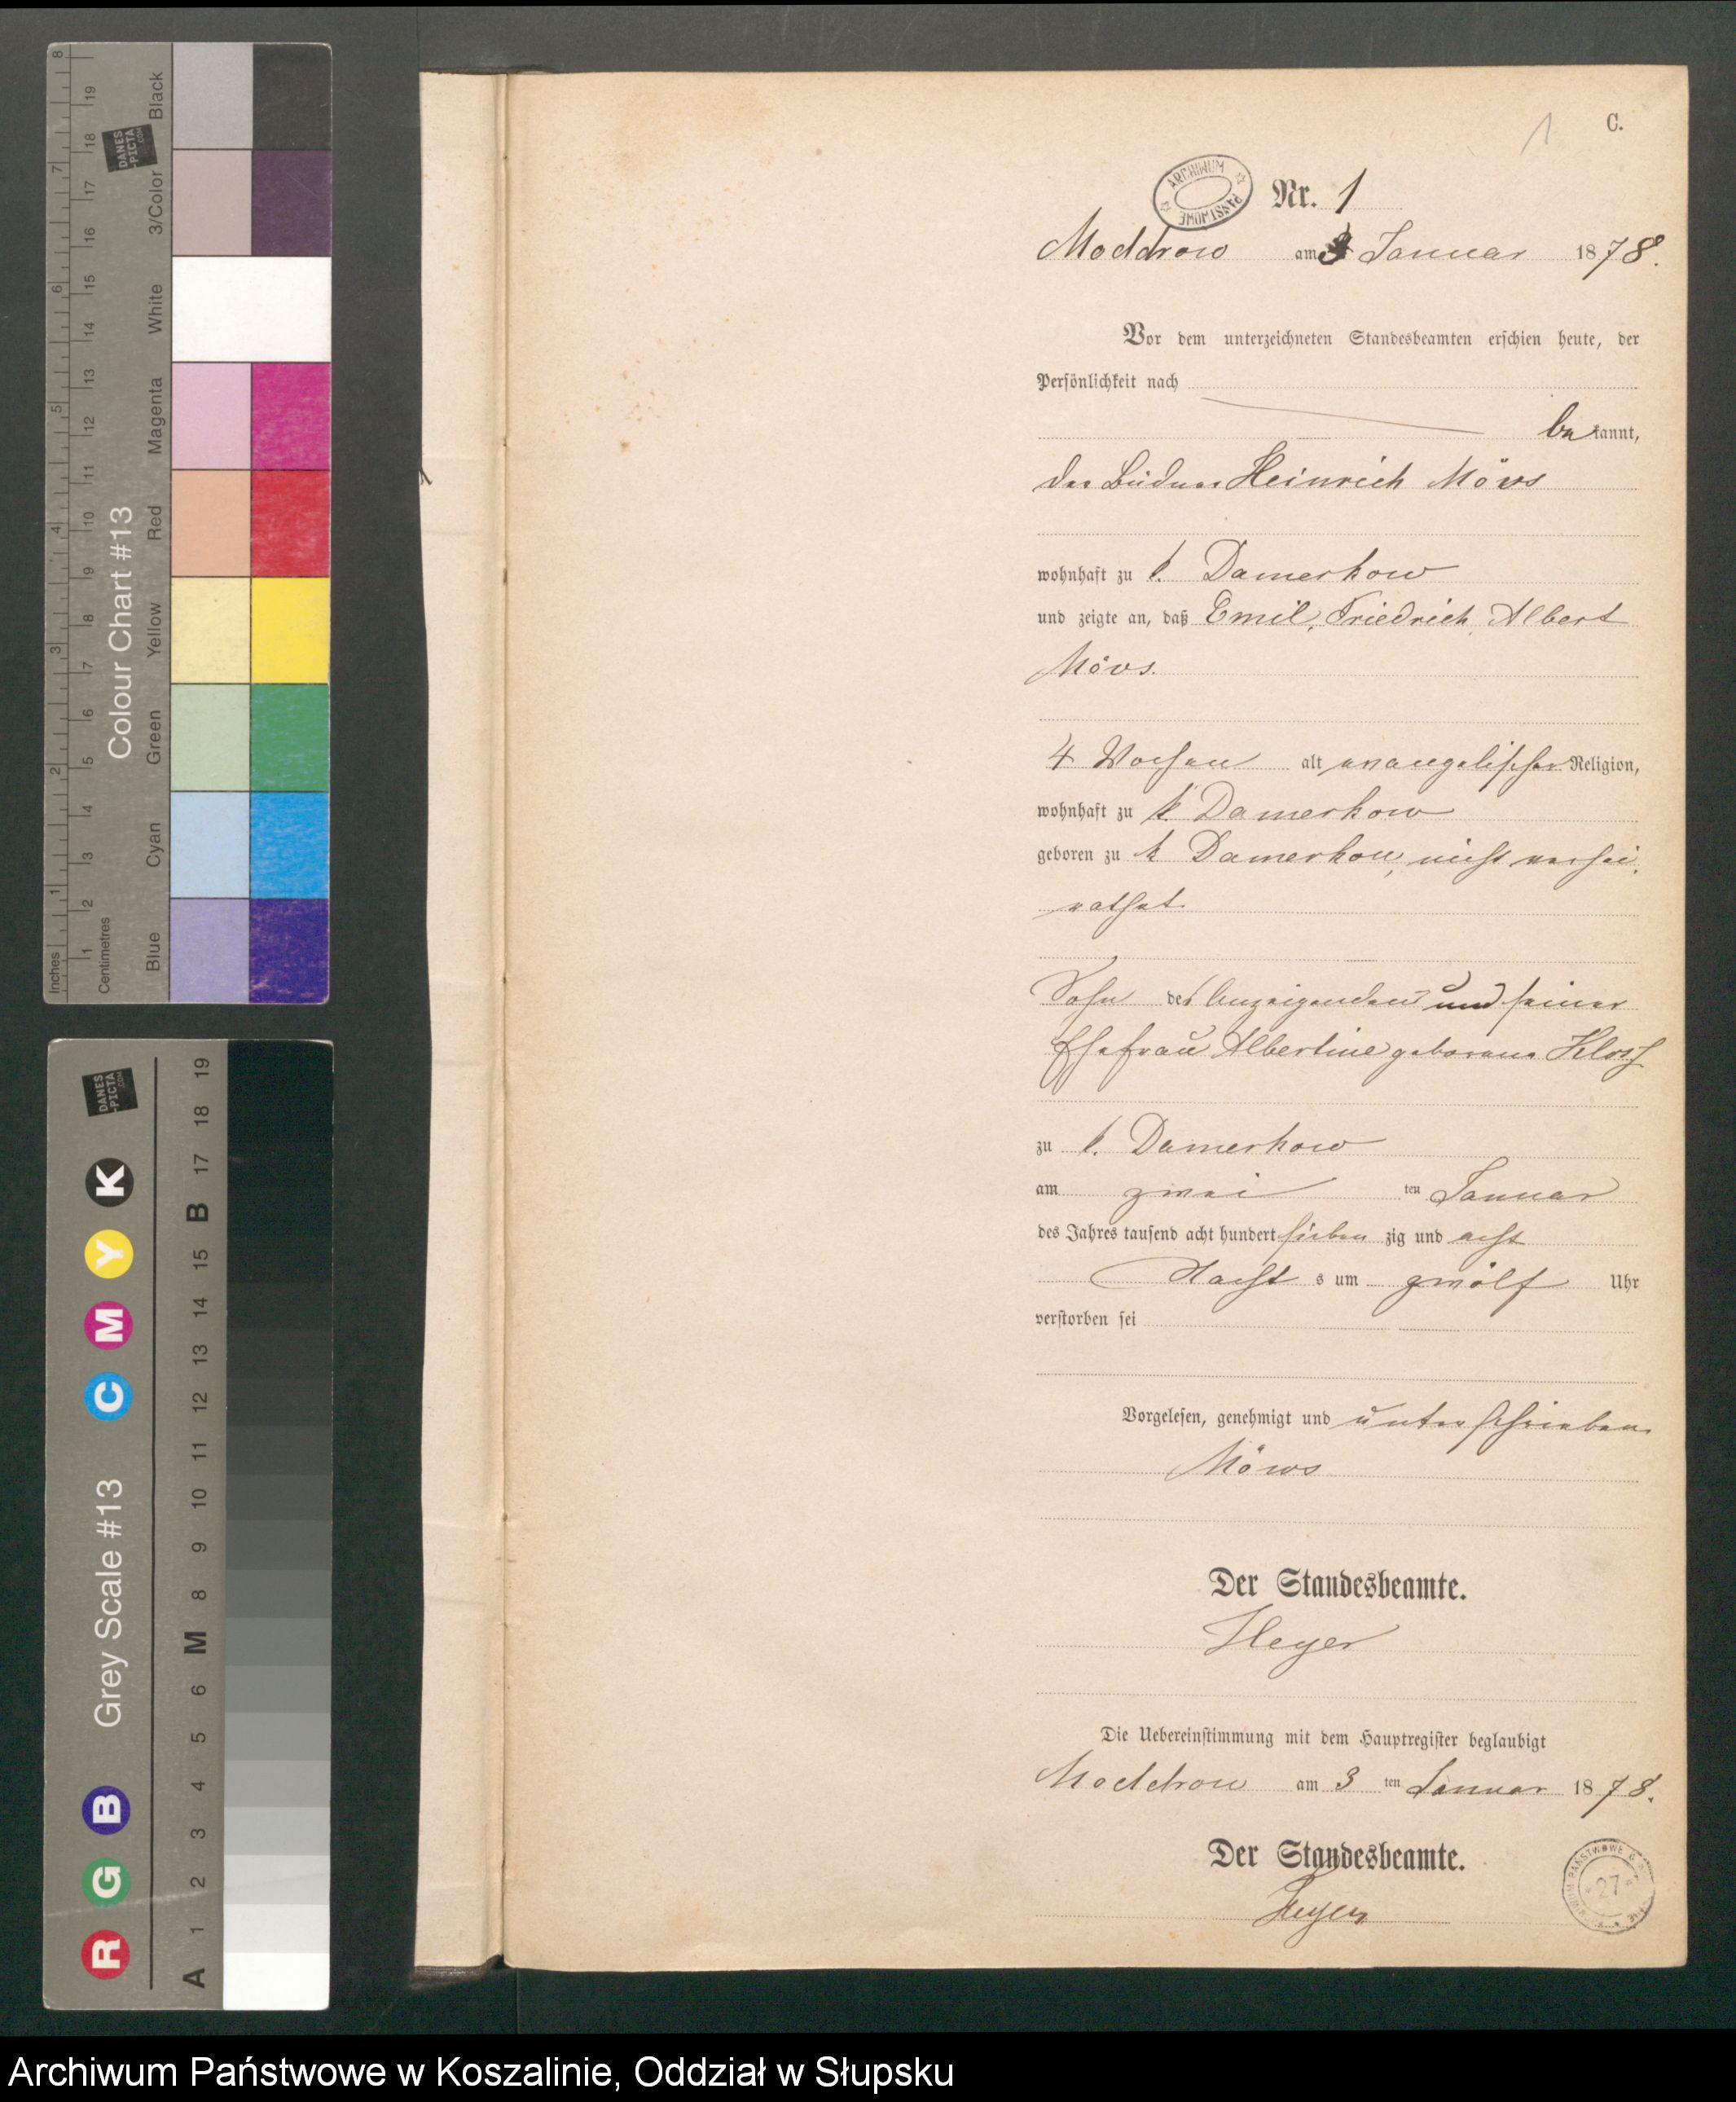 C.
1
ARCHIWUM PAŃSTWOWE
Nr. 1
Moddrow am 3 Januar 1878.
Vor dem unterzeichneten Standesbeamten erschien heute, der
Persönlichkeit nach
bekannt,
der Büdner Heinrich Möws
wohnhaft zu k. Damerkow
und zeigte an, daß Emil, Friedrich, Albert
Mövs.
4 Wochen alt evangelischer Religion,
wohnhaft zu k Damerkow
geboren zu k Damerkow, nicht verhei
rathet.
Sohn des Anzeigenden und seiner
Ehefrau Albertine geborene
zu k. Damerkow
am zwei ten Januar
des Jahres tausend acht hundert sieben zig und acht
Nacht s um zwölf Uhr
verstorben sei
Vorgelesen, genehmigt und unterschrieben.
Möws
Der Standesbeamte.
Heyer
Die Uebereinstimmung mit dem Hauptregister beglaubigt
Moddrow am 3 ten Januar 1878.
Der Standesbeamte.
Heyer
27
Inches 1 2 3 4 5 6 7 8
Centimetres 1 2 3 4 5 6 7 8 9 10 11 12 13 14 15 16 17 18 19
Colour Chart #13
Blue Cyan Green Yellow Red Magenta White 3/Color Black
DANES
-PICTA
.COM
Grey Scale #13
R G B C M Y K
A 1 2 3 4 5 6 M 8 9 10 11 12 13 14 15 B 17 18 19
DANES
-PICTA
.COM
Archiwum Państwowe w Koszalinie, Oddział w Słupsku